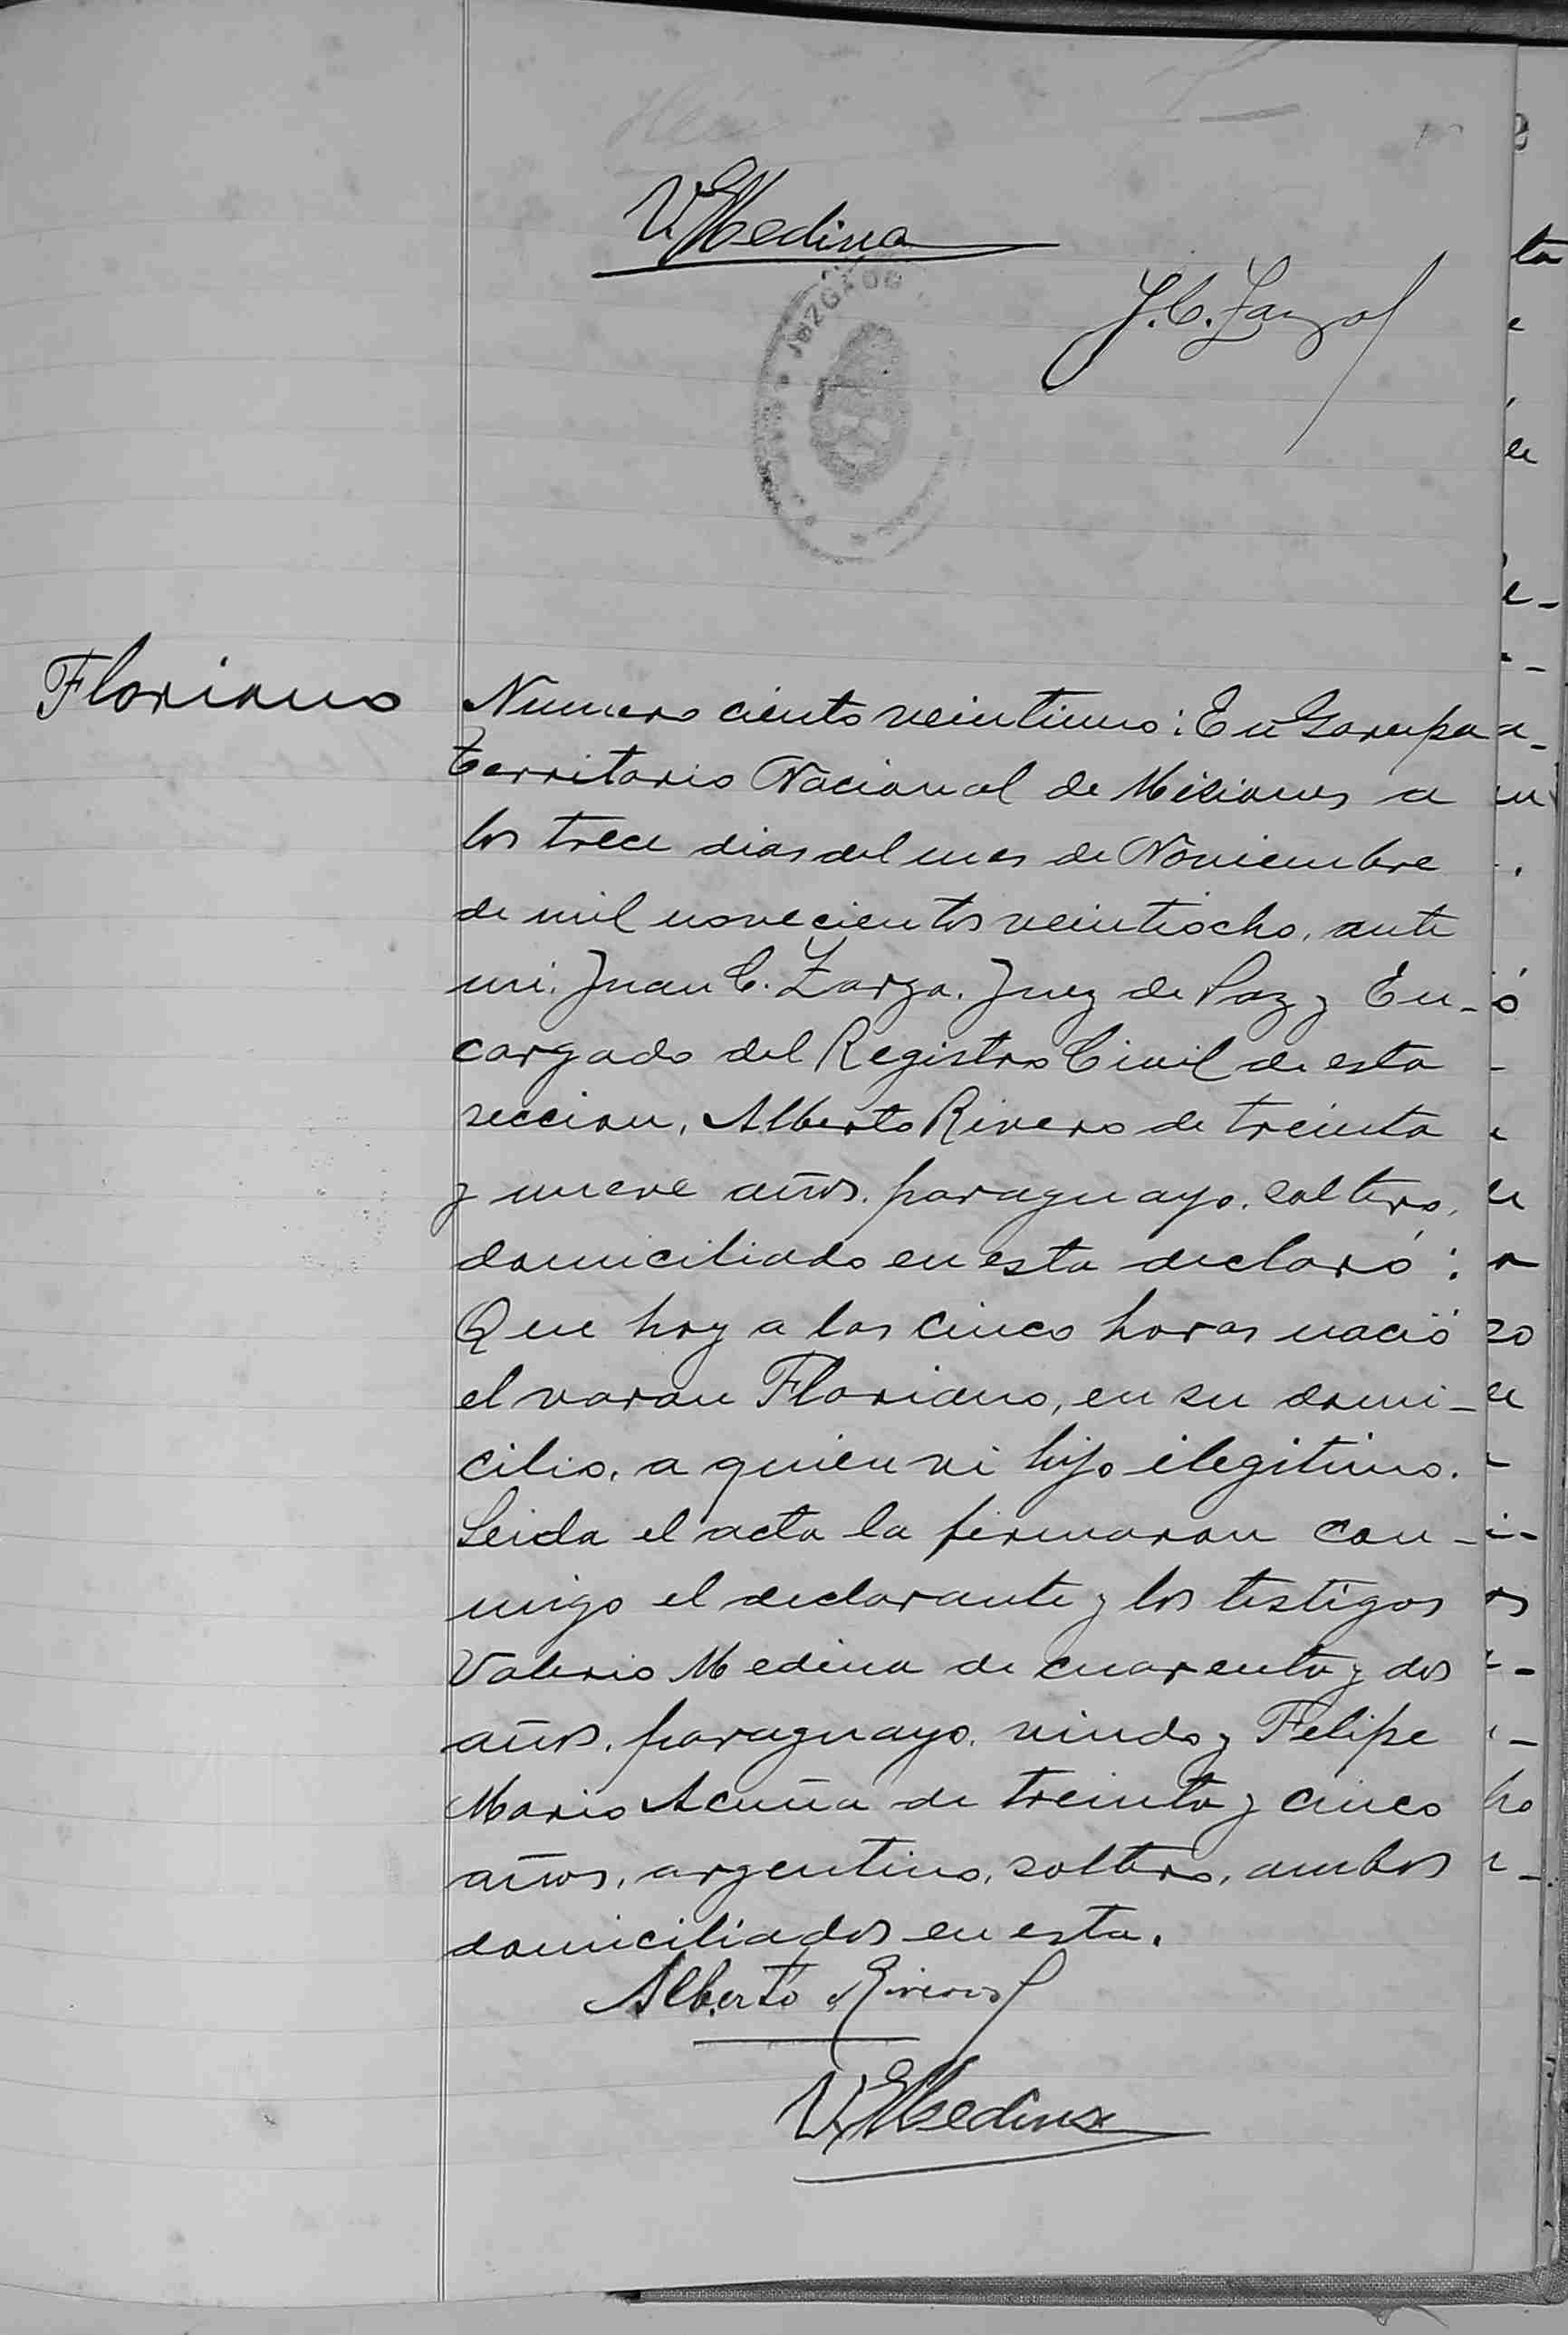 V. Medina
JUZGADO
J. C. Zarza
Floriano
Numero ciento veintiuno: En Garupa
territorio Nacional de Misiones a
los trece dias del mes de Noviembre
de mil novecientos veintiocho, ante
mi. Juan C. Zarza. Juez de Paz y En-
cargado del Registro Civil de esta
seccion, Alberto Rivero de treinta
y nueve años. paraguayo. soltero,
domiciliado en esta declaró:
Que hoy a las cinco horas nació
el varon Floriano, en su domi-
cilio, a quien vi hijo ilegitimo.
Leida el acta la firmaron con-
migo el declarante y los testigos
Valerio Medina de cuarenta y dos
años. paraguayo. viudo y Felipe
Mario Acuña de treinta y cinco
años, argentino, soltero, ambos
domiciliados en esta.
Alberto Riveros
V. Medina